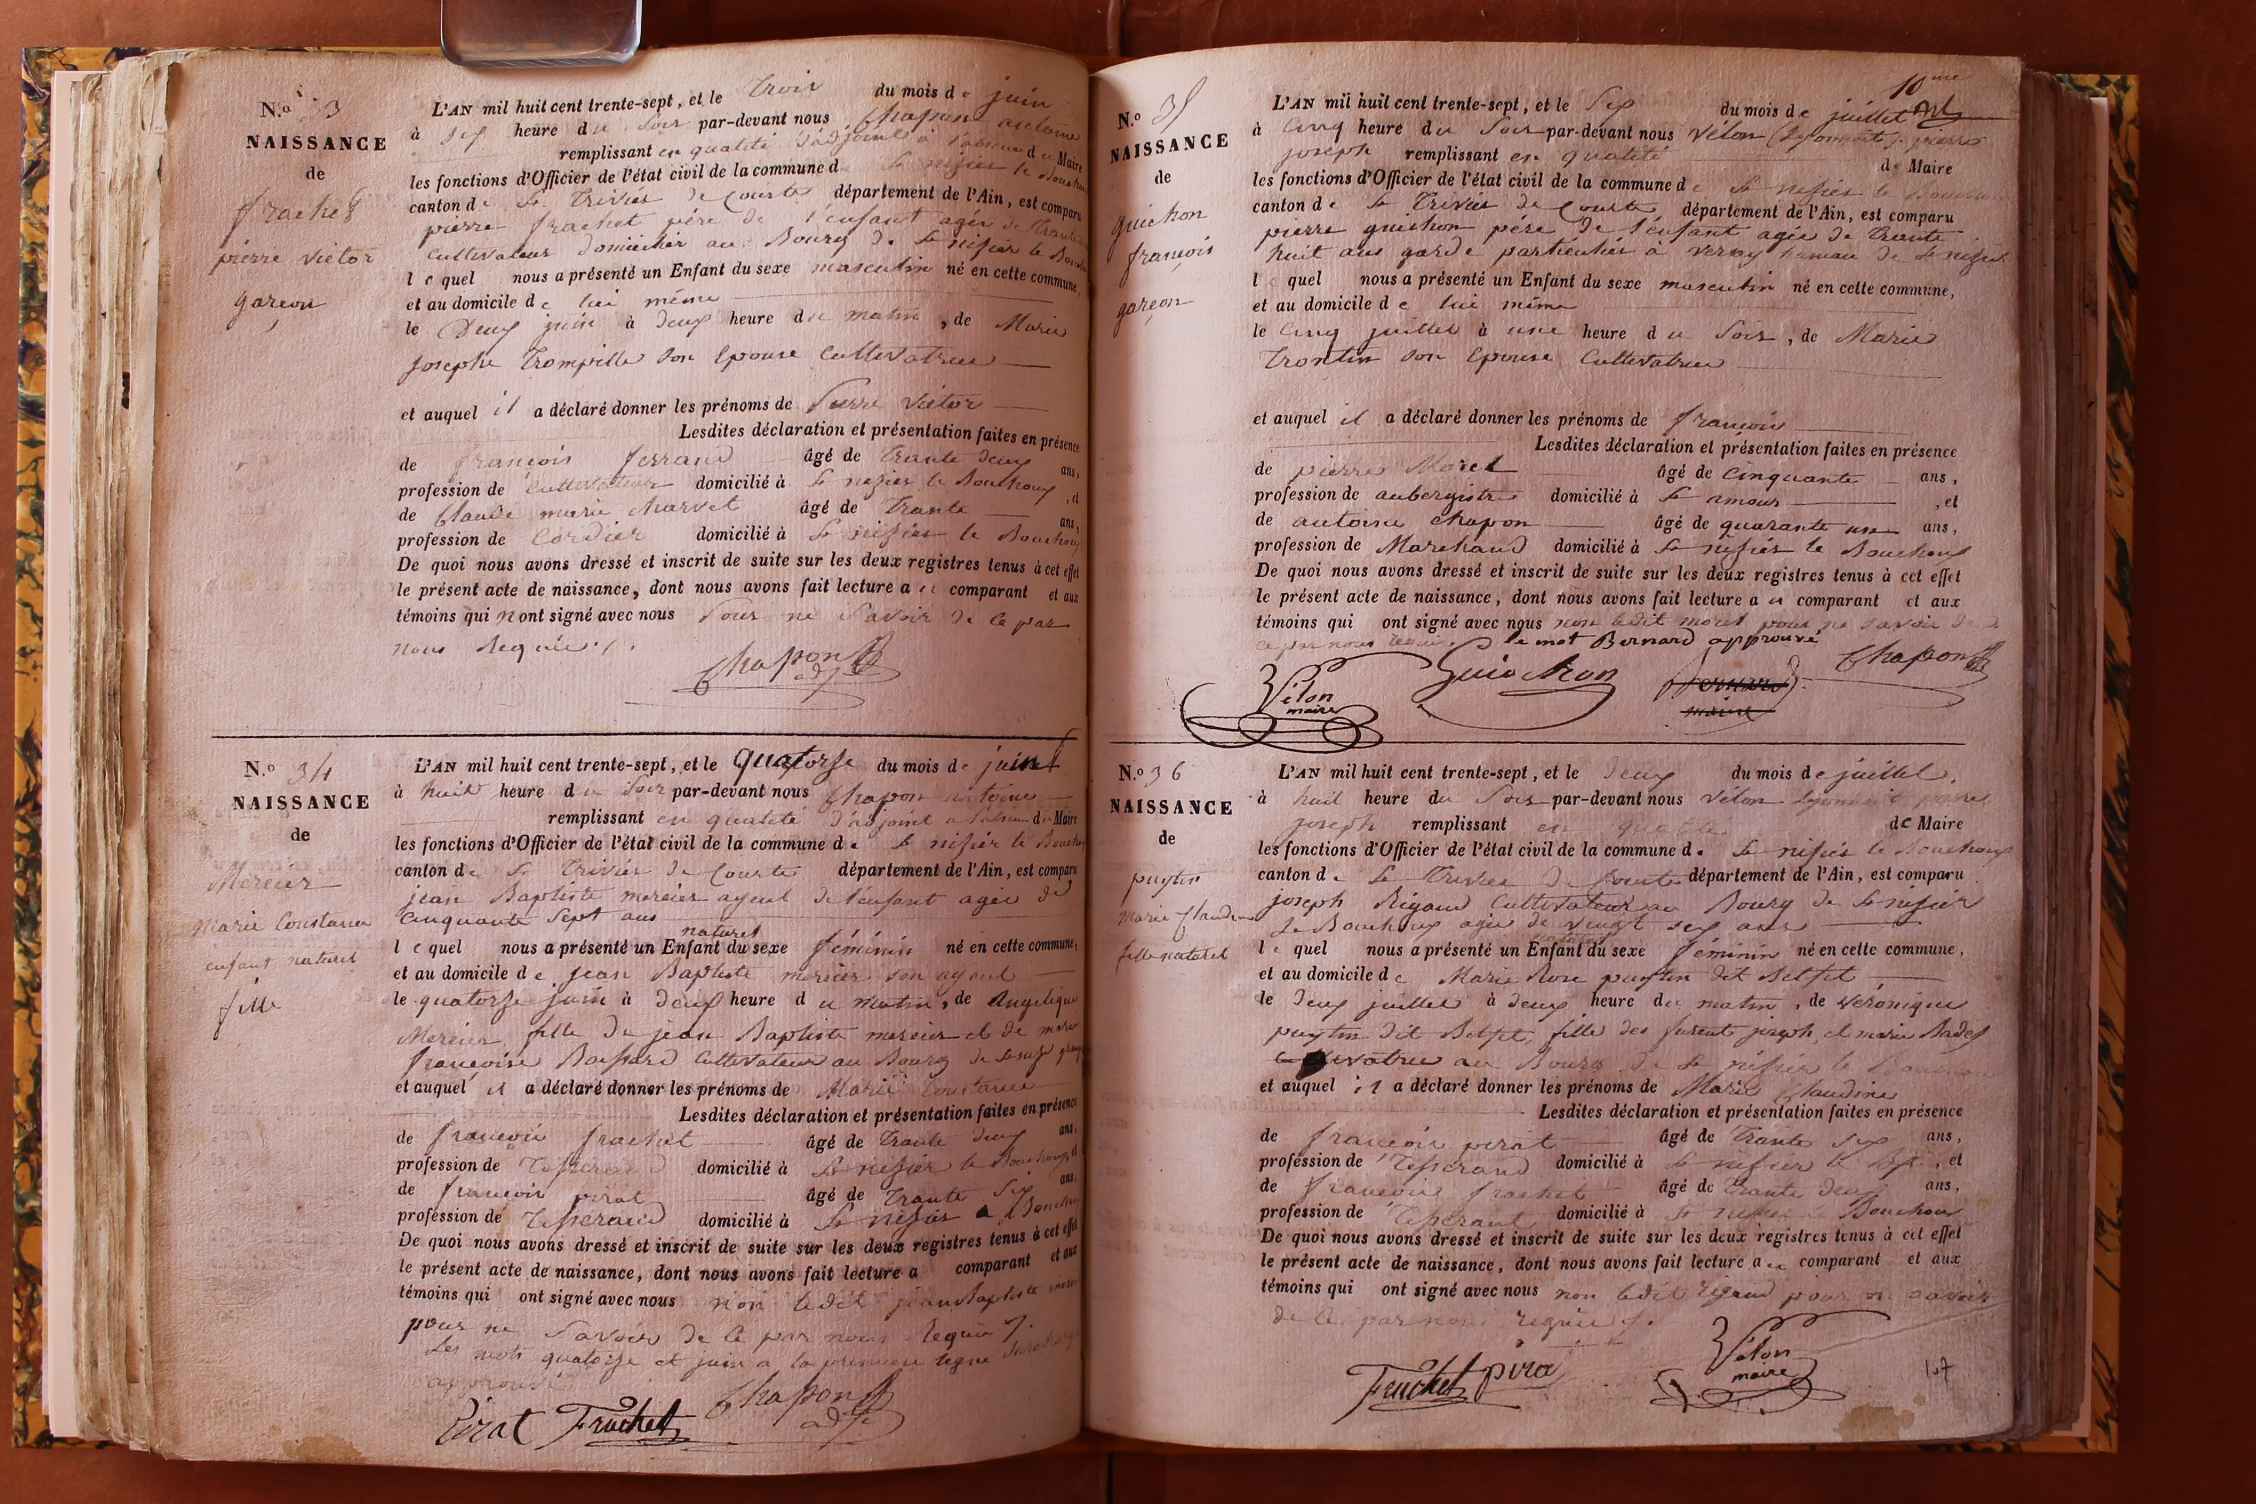 N.o 33
NAISSANCE
de
frachet
pierre victor
garçon
L'AN mil huit cent trente-sept, et le trois du mois de juin
à six heure du Soir par-devant nous Chapon antoine
remplissant en qualité d'adjoint à de Maire
les fonctions d'Officier de l'état civil de la commune de St nisier le Bouchoux
canton de St Trivier de Courtes département de l'Ain, est comparu
pierre frachet père de l'enfant agée de
Cultivateur domicilier au Bourg de St nisier le
le quel nous a présenté un Enfant du sexe masculin né en cette commune,
et au domicile de lui même
le Deux juin à deux heure du matin, de Marie
josephe Trompille son Epouse Cultivatrice
et auquel il a déclaré donner les prénoms de Pierre Victor
Lesdites déclaration et présentation faites en présence
de françois ferrand âgé de trante deux ans,
profession de Cultivateur domicilié à St nizier le Bouchoux, et
de Claude marie Marvet âgé de Trante ans,
profession de Cordier domicilié à St nisier le Bouchoux
De quoi nous avons dressé et inscrit de suite sur les deux registres tenus à cet effet
le présent acte de naissance, dont nous avons fait lecture au comparant et aux
témoins qui nont signé avec nous pour ne Savoir de ce par
nous Requis ./.
Chapon
adj
N.o 34
NAISSANCE
de
Mercier
Marie Constance
enfant naturel
fille
L'AN mil huit cent trente-sept, et le quatorse du mois de juin
à huit heure du Soir par-devant nous Chapon antoine
remplissant en qualité d'adjoint de Maire
les fonctions d'Officier de l'état civil de la commune de St nisier le Bouchoux
canton de St Trivier de Courtes département de l'Ain, est comparu
jean Baptiste mercier ayeul de l'enfant agée de
Cinquante Sept ans
naturel
le quel nous a présenté un Enfant du sexe féminin né en cette commune,
et au domicile de jean Baptiste mercier son ayeul
le quatorse juin à deux heure du matin, de Angelique
Mercier fille de jean Baptiste mercier et de marie
françoise Cultivateur au Bourg de
et auquel il a déclaré donner les prénoms de Marie Constance
Lesdites déclaration et présentation faites en présence
de françois frachet âgé de trante deux ans,
profession de Tisserand domicilié à St nisier le Bouchoux, et
de françois pirat âgé de Trante Six ans,
profession de Tisserand domicilié à St nisier le Bouchoux
De quoi nous avons dressé et inscrit de suite sur les deux registres tenus à cet effet
le présent acte de naissance, dont nous avons fait lecture a comparant et aux
témoins qui ont signé avec nous non ledit jean Baptiste mercier
pour ne Savoir de ce par nous Requis ./.
Les mots quatorse et juin a la premiere ligne
approuvé
Pirat Frachet Chapon
adj
10me
N.o 35
NAISSANCE
de
guichon
françois
garçon
L'AN mil huit cent trente-sept, et le Six du mois de juillet
à Cinq heure du Soir par-devant nous vélon (Lyonnet) pierre
joseph remplissant en qualité de Maire
les fonctions d'Officier de l'état civil de la commune de St nisier le Bouchoux
canton de St Trivier de Courtes département de l'Ain, est comparu
pierre guichon père de l'enfant agée de Trante
huit ans garde particulier à hameau de St nizier
le quel nous a présenté un Enfant du sexe masculin né en cette commune,
et au domicile de lui même
le Cinq juillet à une heure du Soir, de Marie
Trontin son Epouse Cultivatrice
et auquel il a déclaré donner les prénoms de françois
Lesdites déclaration et présentation faites en présence
de pierre Morel âgé de cinquante ans,
profession de aubergiste domicilié à St amour, et
de antoine chapon âgé de quarante un ans,
profession de Marchand domicilié à St nisier le Bouchoux
De quoi nous avons dressé et inscrit de suite sur les deux registres tenus à cet effet
le présent acte de naissance, dont nous avons fait lecture au comparant et aux
témoins qui ont signé avec nous non ledit morel pour ne savoir de
ce par nous requis. le mot Bernard approuvé
Vélon
maire
Guichon
Bernard
maire
Chapon
N.o 36
NAISSANCE
de
puytin
Marie Claudine
fille naturel
L'AN mil huit cent trente-sept, et le deux du mois de juillet,
à huit heure du Soir par-devant nous vélon Lyonnet pierre
joseph remplissant en qualité de Maire
les fonctions d'Officier de l'état civil de la commune de St nisier le Bouchoux
canton de St Trivier de Courtes département de l'Ain, est comparu
joseph Rigaud Cultivateur au Bourg de St nisier
Le Bouchoux agée de vingt six ans
le quel nous a présenté un Enfant du sexe féminin né en cette commune,
et au domicile de Marie Rose puytin dit
le deux juillet à deux heure du matin, de Véronique
puytin dit fille des furent joseph et marie
au Bourg de St nisier le Bouchoux
et auquel il a déclaré donner les prénoms de Marie Claudine
Lesdites déclaration et présentation faites en présence
de françois pirat âgé de Trante six ans,
profession de Tisserand domicilié à St nisier le, et
de françois frachet âgé de trante deux ans,
profession de Tisserant domicilié à St nisier le Bouchoux
De quoi nous avons dressé et inscrit de suite sur les deux registres tenus à cet effet
le présent acte de naissance, dont nous avons fait lecture au comparant et aux
témoins qui ont signé avec nous non ledit rigaud pour ne savoir
de ce par nous requis ./.
Frachet pirat
Vélon
maire
107